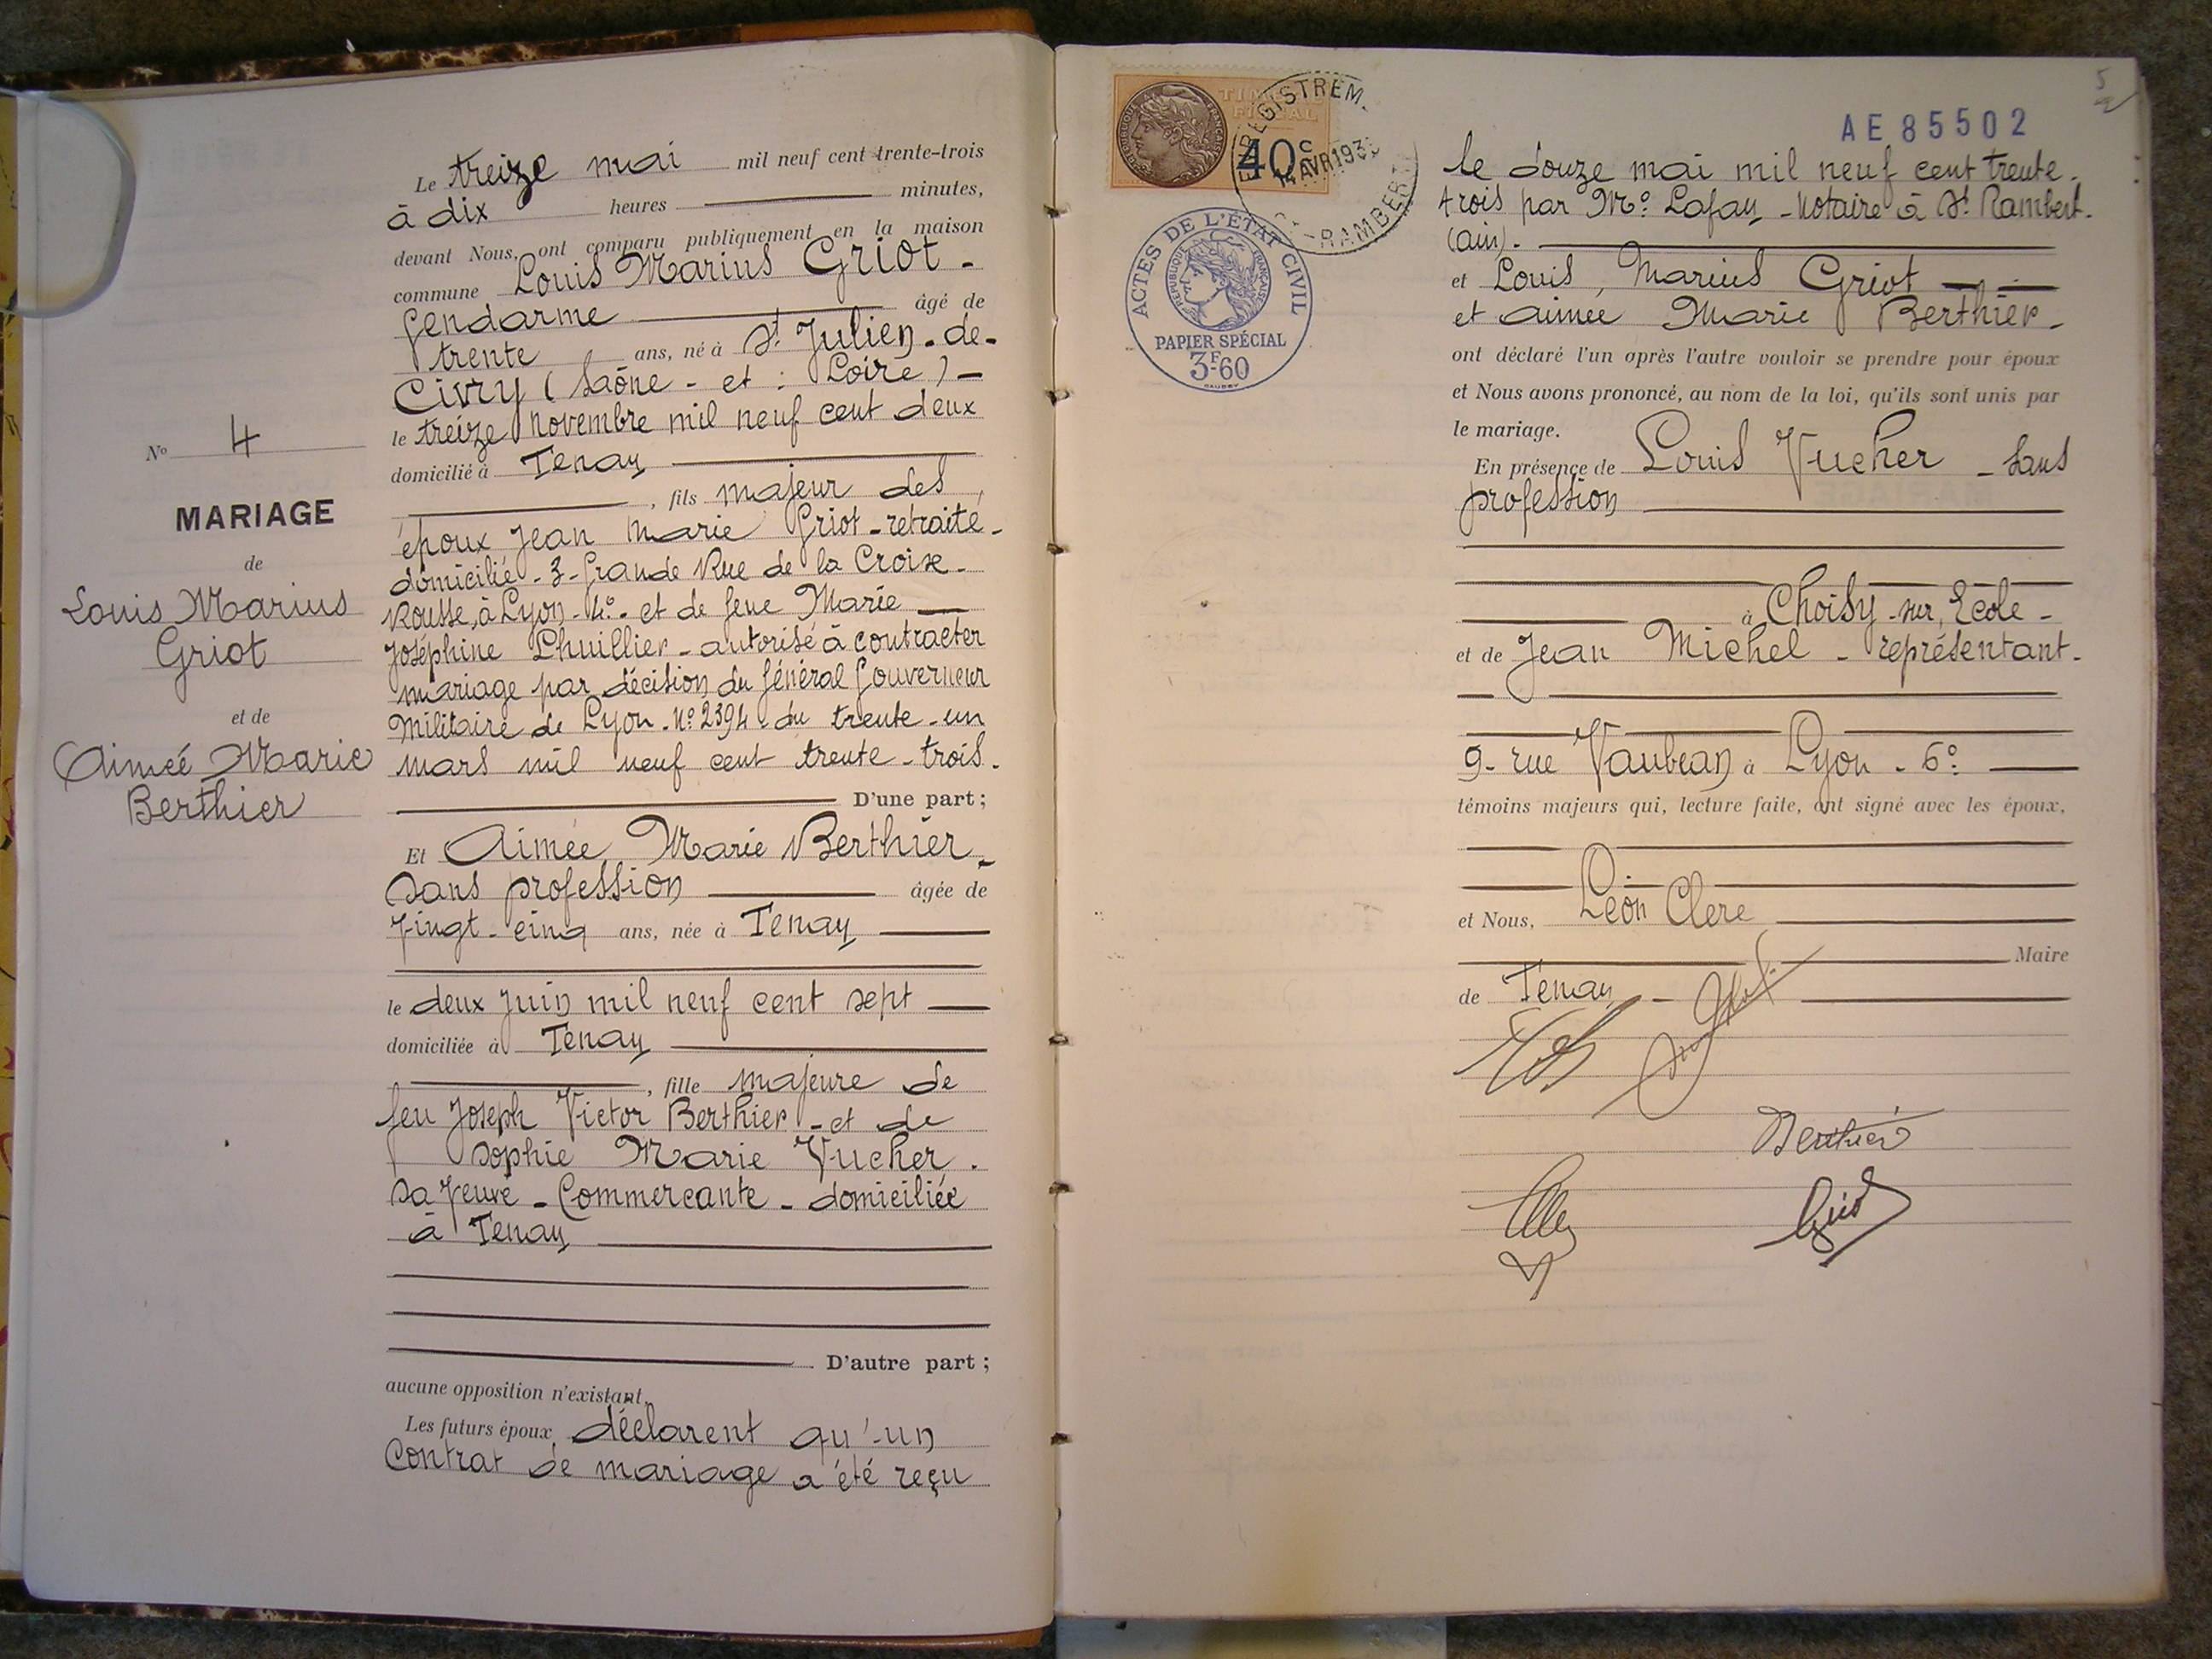 Le treize mai mil neuf cent trente-trois
à dix heures minutes,
devant Nous, ont comparu publiquement en la maison
commune Louis Marius Griot -
gendarme âgé de
trente ans, né à St Julien - de -
Civry (Saône - et - Loire) -
le treize novembre mil neuf cent deux
domicilié à Tenay
, fils majeur des
époux Jean Marie Griot - retraité -
domicilié - 3 - Grande Rue de la Croix -
Rousse, à Lyon - 4° - et de feue Marie
Joséphine Lhuillier - autorisé à contracter
mariage par décision du Général Gouverneur
Militaire de Lyon - N° 2394 - du trente - un
mars mil neuf cent trente - trois.
D'une part ;
Et Aimée Marie Berthier -
sans profession âgée de
vingt - cinq ans, née à Tenay
le deux juin mil neuf cent sept
domiciliée à Tenay
, fille majeure de
feu Joseph Victor Berthier - et de
Sophie Marie Vucher.
sa veuve - Commercante - domiciliée
à Tenay
D'autre part ;
aucune opposition n'existant.
Les futurs époux déclarent qu'un
Contrat de mariage a été reçu
N° 4
MARIAGE
de
Louis Marius
Griot
et de
Aimeé Marie
Berthier
5
AE 85502
TIMBRE
FISCAL
REPUBLIQUE FRANÇAISE
40c
ENREGISTREM.
14 AVR 193
RAMBERT
ACTES DE L'ÉTAT CIVIL
REPUBLIQUE FRANÇAISE
PAPIER SPÉCIAL
3F60
le douze mai mil neuf cent trente -
trois par Me Lafay - Notaire à St Rambert -
(ain) -
et Louis, Marius Griot
et aimée Marie Berthier -
ont déclaré l'un après l'autre vouloir se prendre pour époux
et Nous avons prononcé, au nom de la loi, qu'ils sont unis par
le mariage.
En présence de Louis Vucher - sans
profession
à Choisy - sur, Ecole -
et de Jean Michel - représentant -
9 - rue Vauban à Lyon - 6°
témoins majeurs qui, lecture faite, ont signé avec les époux,
et Nous, Léon Clerc
Maire
de Tenay -
Berthier
Griot